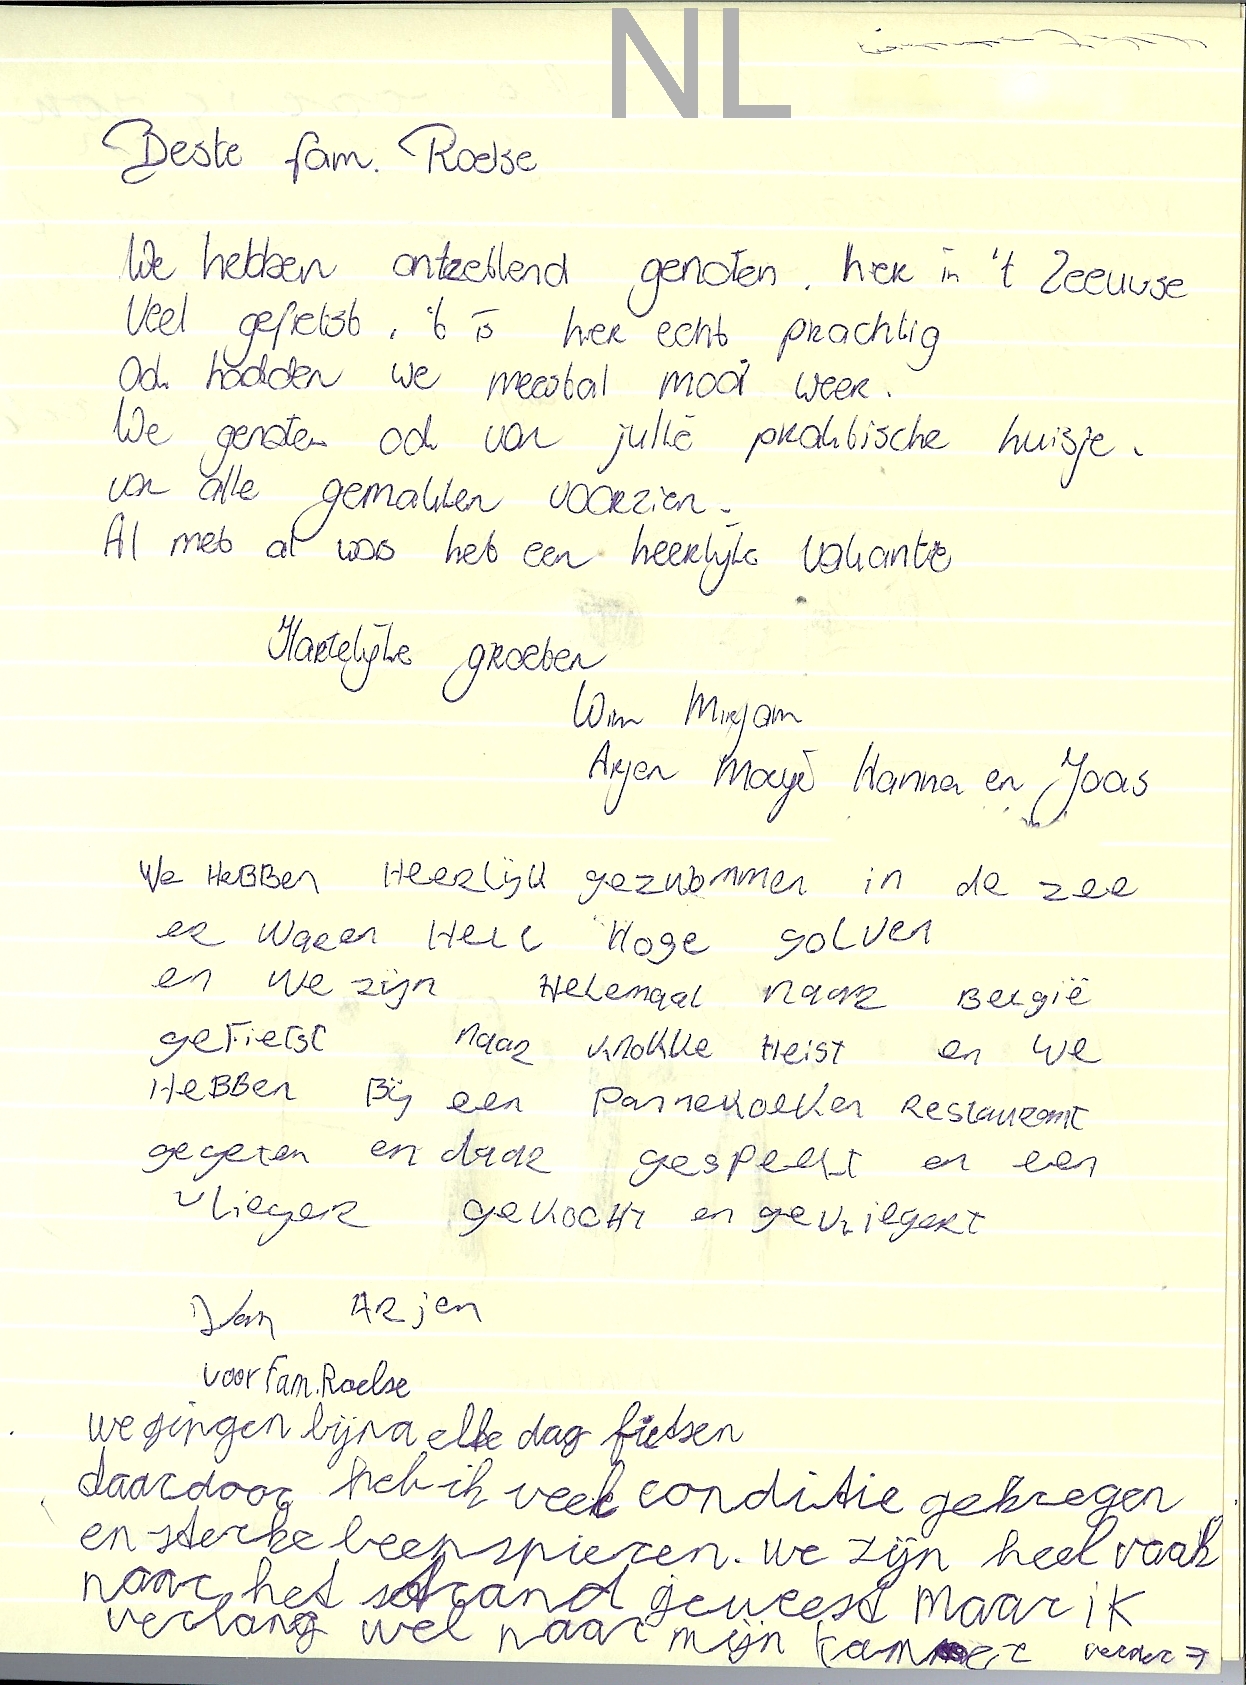 NL
Beste fam. Roelse
We hebben ontzettend genoten. hier in 't Zeeuwse
Veel gefietst, 't is hier echt prachtig
Ook hadden we meestal mooi weer.
We genoten ook van jullie praktische huisje.
van alle gemakken voorzien.
Al met al was het een heerlijke vakantie
Hartelijke groeten
Wim Mirjam
Arjen Hanna en Joas
We HeBBen Heerlijk gezwommen in de zee
er waren Heel Hoge golven
en We zijn Helemaal naar België
geFietst naar knokke Heist en we
HeBBen Bij een Pannekoeken Restaurant
gegeten en daar gespeelt en een
vlieger gekocht en gevliegert
Van Arjen
voor Fam. Roelse
we gingen bijna elke dag fietsen
daardoor heb ik veel conditie gekregen
en sterke beenspieren. we zijn heel vaak
naar het strand geweest Maar ik
verlang wel naar mijn kamer verder →